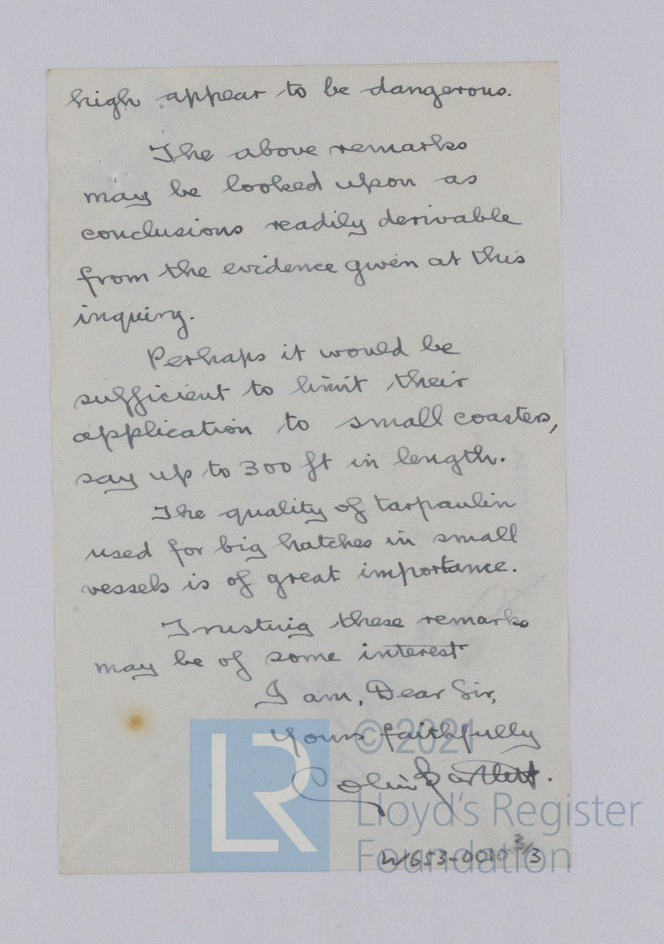 high appear to be dangerous.
The above remarks
may be looked upon as
conclusions readily derivable
from the evidence given at this
inquiry.
Perhaps it would be
sufficient to limit their
application to small coasters,
say up to 300 ft in length.
The quality of tarpaulin
used for big hatches in small
vessels is of great importance.
Trusting these remarks
may be of some interest
I am, Dear Sir,
Yours faithfully
Colin Bartlett.
© 2021
LR
Lloyd's Register
Foundation
W653-0010 2/3